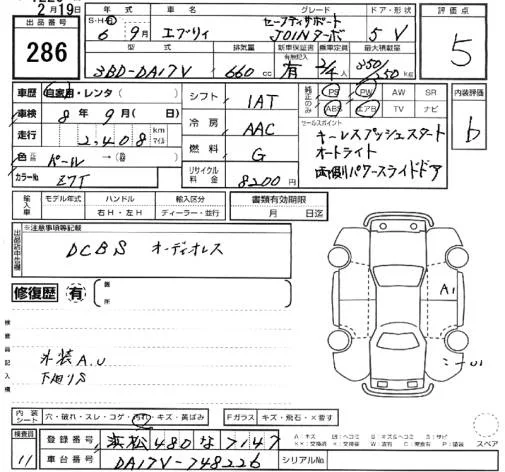 2月19日
出品番号 年式 車名 グレード ドア・形状 評価点
286 S・H・R 6年 9月 エブリィ セーフティサポート JOINターボ 5 V 5
型式 排気量 新車保証書 有無記入 乗車定員 最大積載量
3BD-DA17V 660cc 有 2/4人 350/250kg
車歴 自家用・レンタ シフト IAT 純正のみ PS PW AW SR 内装評価
車検 8年 9月( 日) 冷房 AAC ABS エアB TV ナビ b
走行 2,408 km マイル 燃料 G セールスポイント
キーレスプッシュスタート
オートライト
両側パワースライドドア
色 パール
カラーNo. Z7T リサイクル料金 8200円
輸入車 モデル年式 ハンドル 右H・左H 輸入区分 ディーラー・並行 書類有効期限 月 日迄
※注意事項等記載
DCBS オーディオレス
修復歴 有
検査員記入欄
外装A.U
下廻りS
A1
内装シート 穴・破れ・スレ・コゲ・汚れ・キズ・黄ばみ Fガラス キズ・飛石・×要す
スペア
検査員 11 登録番号 浜松480な7147
車台番号 DA17V-748226 シリアルNo.